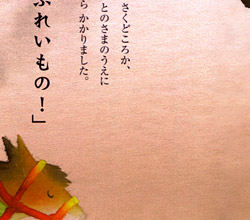 さくどころか、
とのさまのうえに
ら かかりました。
ぶれいもの！」